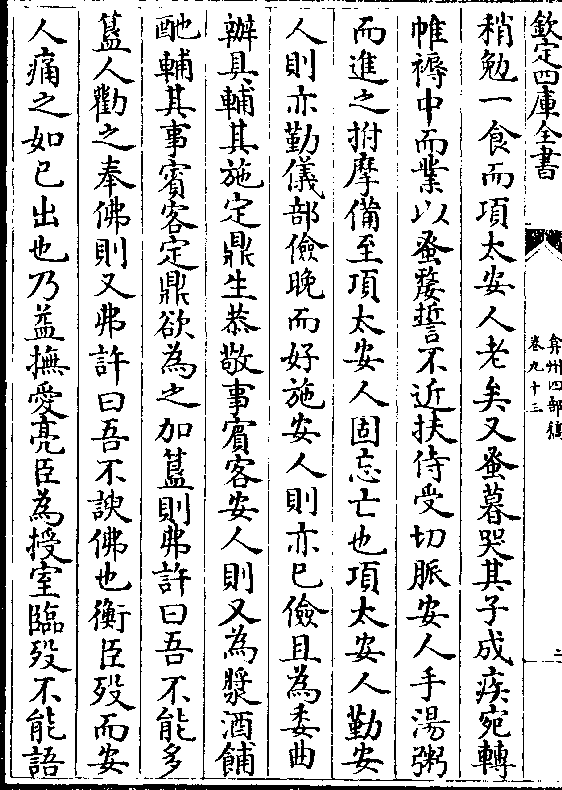 欽定四庫全書
弇州四部稿
卷九十三
二
稍勉一食而項太安人老矣又蚤暮哭其子成疾宛轉
帷褥中而業以蚤嫠誓不近扶侍受切脈安人手湯粥
而進之拊摩備至項太安人固忘亡也項太安人勤安
人則亦勤儀部儉晚而好施安人則亦已儉且為委曲
辦具輔其施定鼎生恭敬事賓客安人則又為漿酒餔
酏輔其事賓客定鼎欲為之加簋則弗許曰吾不能多
簋人勸之奉佛則又弗許曰吾不諛佛也衡臣歿而安
人痛之如已出也乃益撫愛亮臣為授室臨歿不能語